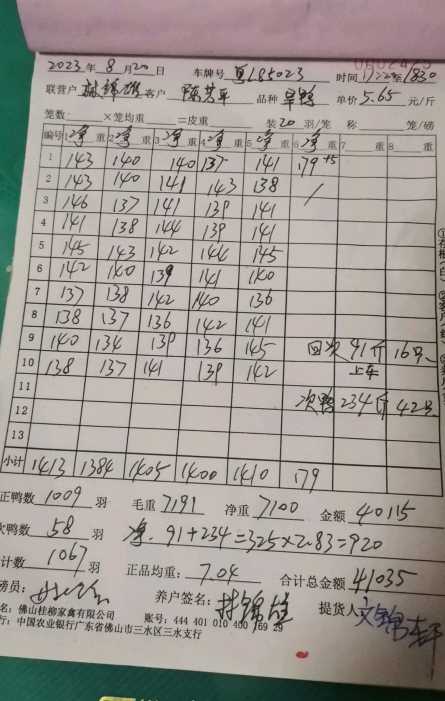 2023年8月20日 车牌号 粤L85023 时间 17:20至1830
联营户 林锦雄 客户 陈芳平 品种 旱鸭 单价5.65元/斤
笼数 ×笼均重 =皮重 装20羽/笼 称 笼/磅
编号 1净重 2净重 3净重 4净重 5净重 6净重 7 重 8 重
1 143 140 140 137 141 79 +5
2 143 140 141 143 138 /
3 146 137 141 139 141
4 141 138 144 139 141
5 145 143 142 144 145
6 142 140 139 141 140
7 137 138 142 140 136
8 138 137 136 142 141
9 140 134 139 136 145 回次 91斤 16只
10 138 137 141 139 142 上车
11 次鸭 234斤 42只
12
13
小计 1413 1384 1405 1400 1410 79
正鸭数 1009 羽 毛重 7191 净重 7100 金额 40115
次鸭数 58 羽 净. 91+234=325×2.83=920
计数 1067 羽 正品均重: 7.04 合计总金额 41035
磅员: 养户签名: 林锦雄 提货人
名: 佛山桂柳家禽有限公司 账号: 444 401 010 400 169 29
行: 中国农业银行广东省佛山市三水区三水支行